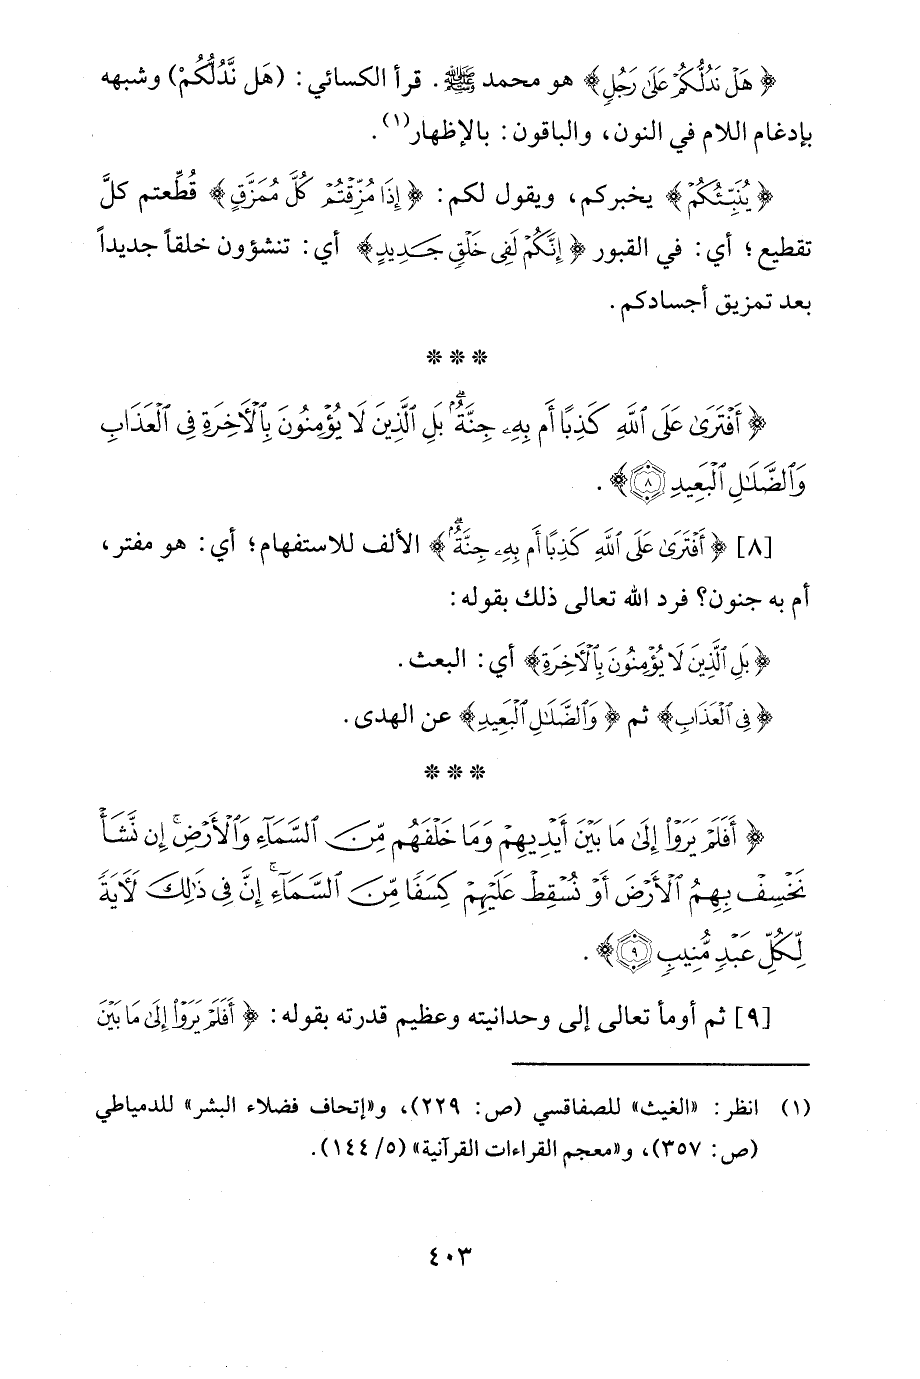 ﴿هَلْ نَدُلُّكُمْ عَلَى رَجُلٍ﴾ هو محمد ﷺ. قرأ الكسائي: (هَل نَّدُلُّكُمْ) وشبهه
بإدغام اللام في النون، والباقون: بالإظهار(١).
﴿يُنَبِّئُكُمْ﴾ يخبركم، ويقول لكم: ﴿إِذَا مُزِّقْتُمْ كُلَّ مُمَزَّقٍ﴾ قُطِّعتم كلَّ
تقطيع؛ أي: في القبور ﴿إِنَّكُمْ لَفِي خَلْقٍ جَدِيدٍ﴾ أي: تنشؤون خلقاً جديداً
بعد تمزيق أجسادكم.
* * *
﴿أَفْتَرَىٰ عَلَى ٱللَّهِ كَذِبًا أَم بِهِۦ جِنَّةٌۢ ۗ بَلِ ٱلَّذِينَ لَا يُؤْمِنُونَ بِٱلْأَخِرَةِ فِى ٱلْعَذَابِ
وَٱلضَّلَـٰلِ ٱلْبَعِيدِ ٨﴾.
[٨] ﴿أَفْتَرَىٰ عَلَى ٱللَّهِ كَذِبًا أَم بِهِۦ جِنَّةٌۢ ۗ﴾ الألف للاستفهام؛ أي: هو مفتر،
أم به جنون؟ فرد الله تعالى ذلك بقوله:
﴿بَلِ ٱلَّذِينَ لَا يُؤْمِنُونَ بِٱلْأَخِرَةِ﴾ أي: البعث.
﴿فِى ٱلْعَذَابِ﴾ ثم ﴿وَٱلضَّلَـٰلِ ٱلْبَعِيدِ﴾ عن الهدى.
* * *
﴿أَفَلَمْ يَرَوْا۟ إِلَىٰ مَا بَيْنَ أَيْدِيهِمْ وَمَا خَلْفَهُم مِّنَ ٱلسَّمَآءِ وَٱلْأَرْضِ ۚ إِن نَّشَأْ
نَخْسِفْ بِهِمُ ٱلْأَرْضَ أَوْ نُسْقِطْ عَلَيْهِمْ كِسَفًا مِّنَ ٱلسَّمَآءِ ۚ إِنَّ فِى ذَٰلِكَ لَأَيَةً
لِّكُلِّ عَبْدٍ مُّنِيبٍ ٩﴾.
[٩] ثم أومأ تعالى إلى وحدانيته وعظيم قدرته بقوله: ﴿أَفَلَمْ يَرَوْا۟ إِلَىٰ مَا بَيْنَ
(١) انظر: «الغيث» للصفاقسي (ص: ٢٢٩)، و«إتحاف فضلاء البشر» للدمياطي
(ص: ٣٥٧)، و«معجم القراءات القرآنية» (٥/ ١٤٤).
٤٠٣